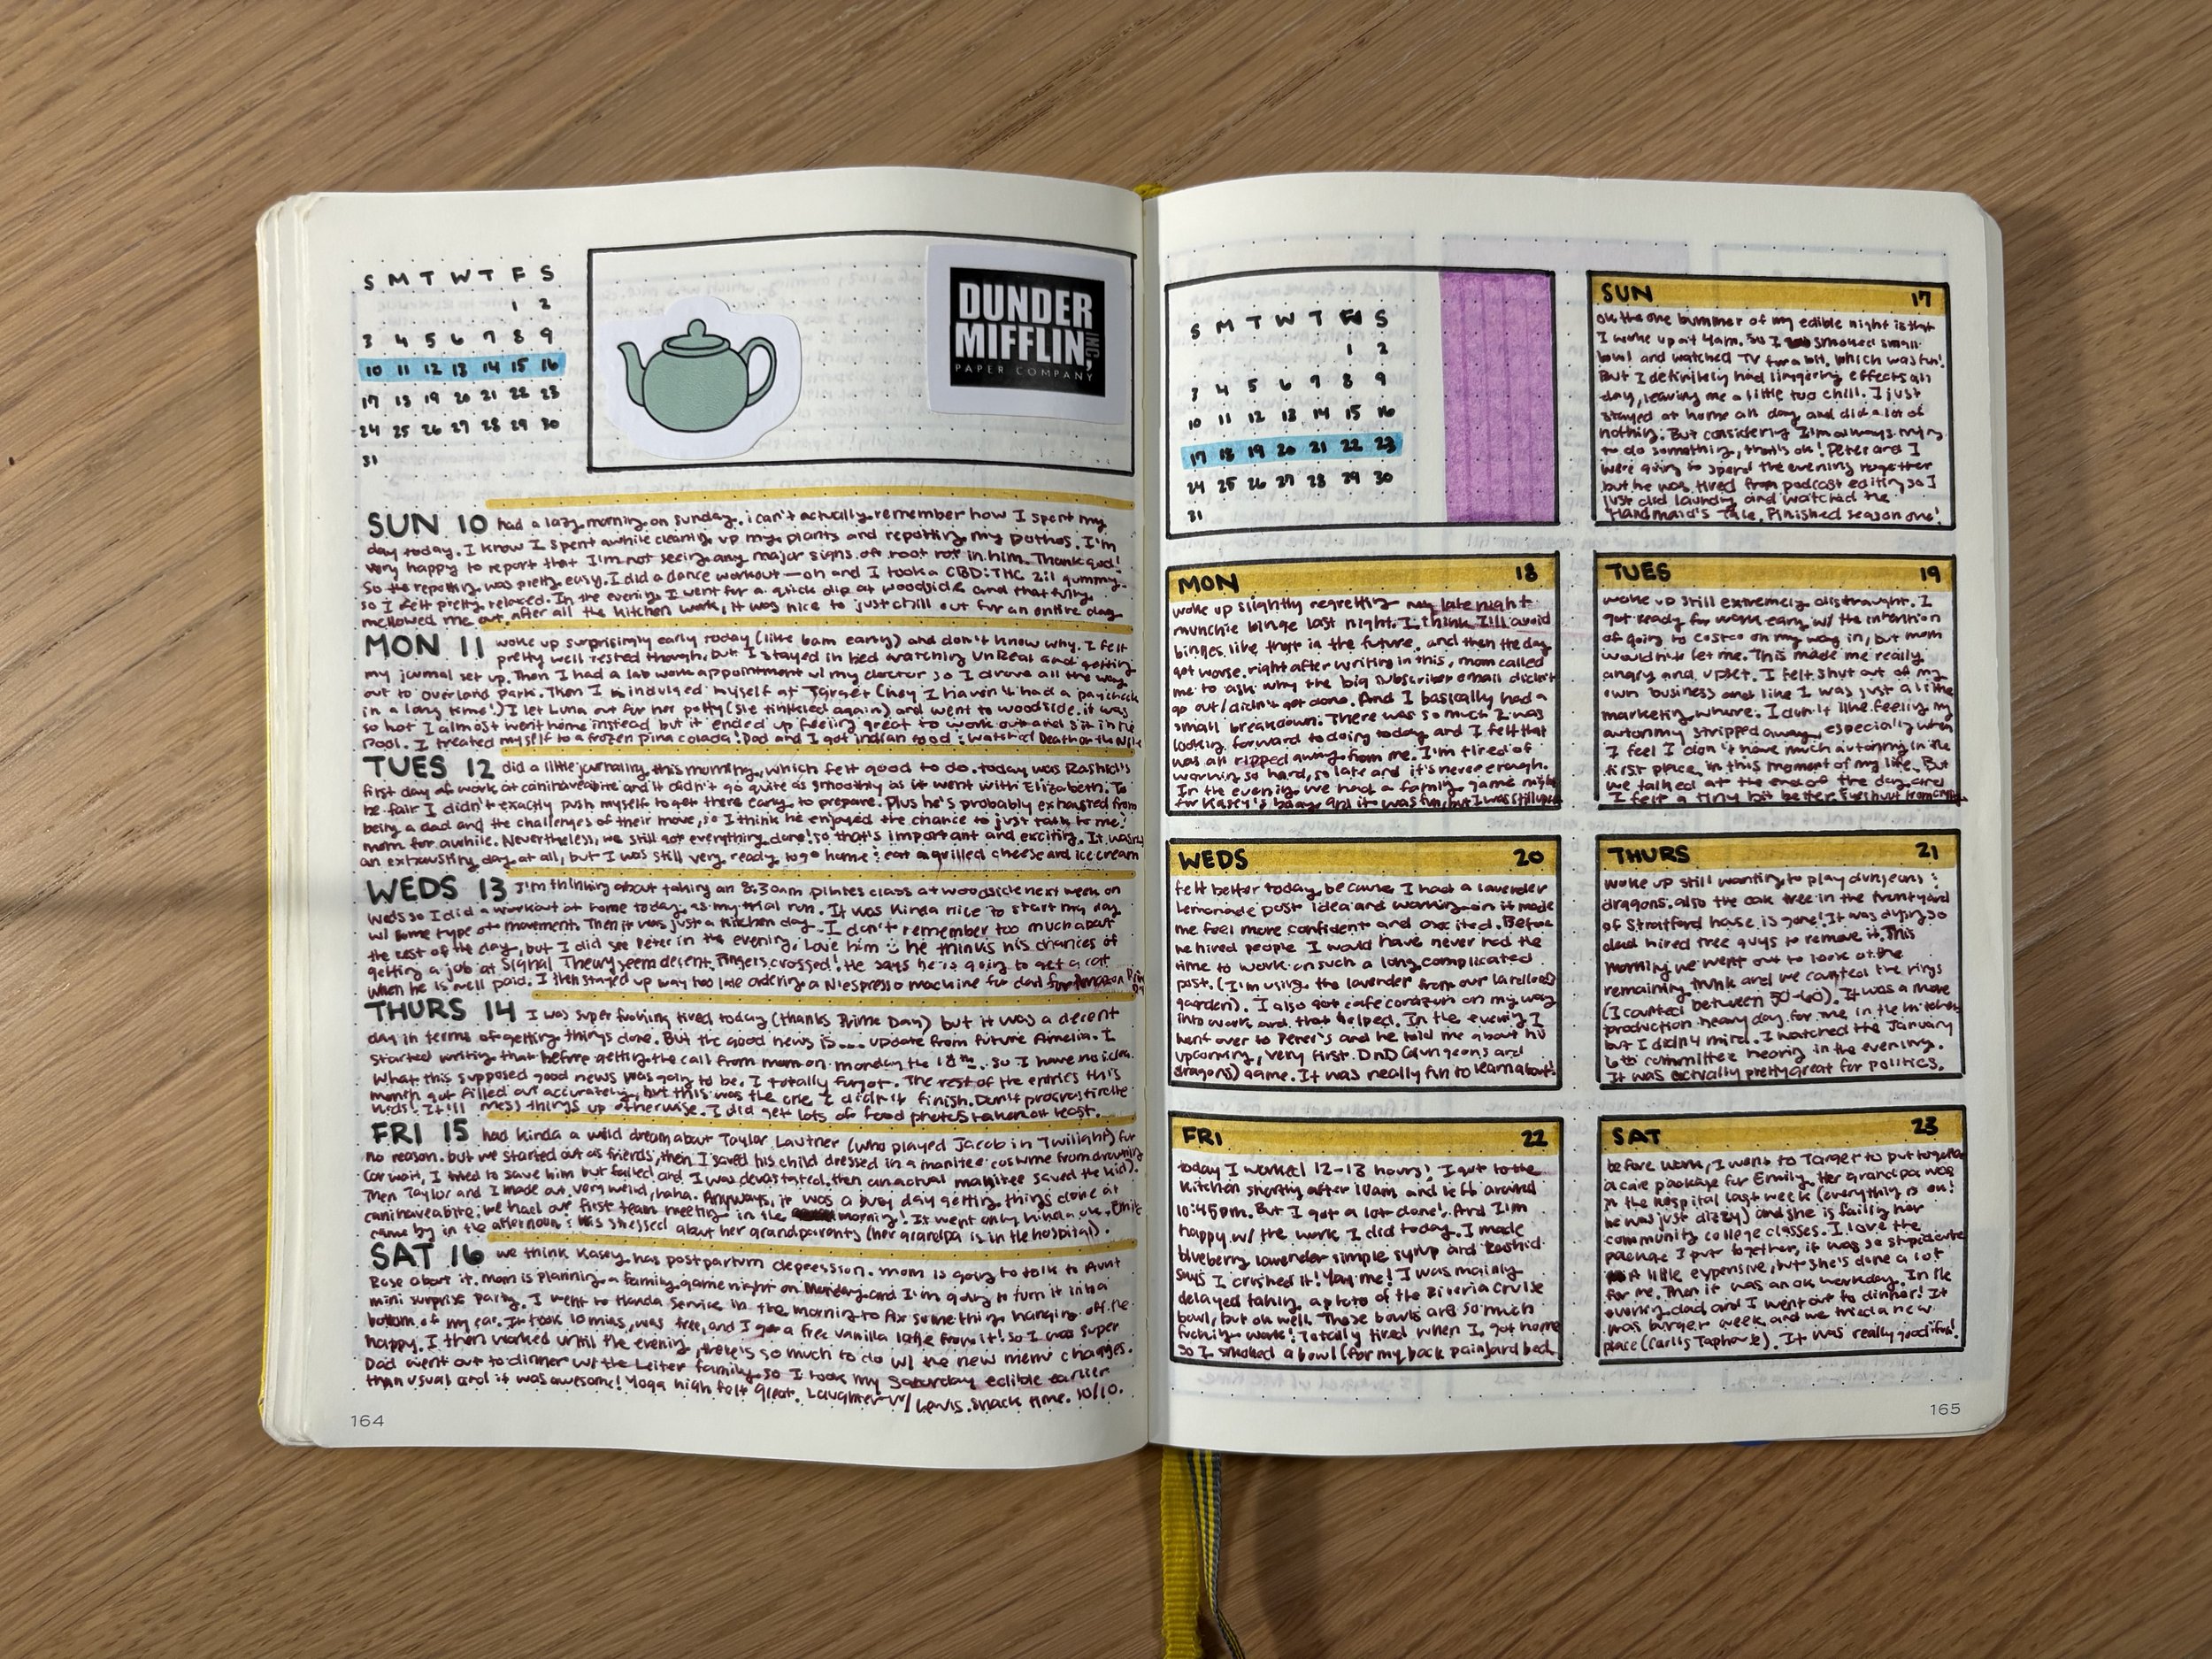 S M T W T F S
1 2
3 4 5 6 7 8 9
10 11 12 13 14 15 16
17 18 19 20 21 22 23
24 25 26 27 28 29 30
31
DUNDER
MIFFLIN, INC
PAPER COMPANY
SUN 10 had a lazy morning on sunday. i can't actually remember how I spent my
day today. I know I spent awhile cleaning up my plants and repotting my pothos. I'm
very happy to report that I'm not seeing any major signs of root rot in him. Thank god!
So the repotting was pretty easy. I did a dance workout — oh and I took a CBD:THC 2:1 gummy
so I felt pretty relaxed. In the evening I went for a quick dip at woodside and that fully
mellowed me out. after all the kitchen work, it was nice to just chill out for an entire day
MON 11 woke up surprisingly early today (like 6am early) and don't know why. I felt
pretty well rested though, but I stayed in bed watching UnReal and getting
my journal set up. Then I had a lab work appointment w/ my doctor so I drove all the way
out to overland park. Then I indulged myself at Target (hey I haven't had a paycheck
in a long time!) I let Luna out for her potty (she tinkled again) and went to woodside. it was
so hot I almost went home instead but it ended up feeling great to work out and sit in the
pool. I treated myself to a frozen pina colada! Dad and I got indian food : watched Death on the Nile
TUES 12 did a little journaling this morning, which felt good to do. today was Rashid's
first day of work at canihaveabite and it didn't go quite as smoothly as it went with Elizabeth. To
be fair I didn't exactly push myself to get there early to prepare. Plus he's probably exhausted from
being a dad and the challenges of their move, so I think he enjoyed the chance to just talk to me :
mom for awhile. Nevertheless, we still got everything done! so that's important and exciting. It wasn't
an exhausting day at all, but I was still very ready to go home : eat a grilled cheese and ice cream
WEDS 13 I'm thinking about taking an 8:30am pilates class at woodside next week on
weds so I did a workout at home today as my trial run. It was kinda nice to start my day
w/ some type of movement. Then it was just a kitchen day. I don't remember too much about
the rest of the day, but I did see Peter in the evening. Love him he thinks his chances of
getting a job at Signal Theory seem decent. Fingers crossed! He says he is going to get a cat
when he is well paid. I then stayed up way too late ordering a Nespresso machine for dad for Amazon Prime
THURS 14 I was super fucking tired today (thanks Prime Day) but it was a decent
day in terms of getting things done. But the good news is.... update from future Amelia. I
started writing that before getting the call from mom on monday the 18th... so I have no idea
what this supposed good news was going to be. I totally forgot. The rest of the entries this
month got filled out accurately, but this was the one I didn't finish. Don't procrastinate
kids! It'll mess things up otherwise. I did get lots of food photos taken at least.
FRI 15 had kinda a wild dream about Taylor Lautner (who played Jacob in Twilight) for
no reason. but we started out as friends, then I saved his child dressed in a manitee costume from drowning
(or wait, I tried to save him but failed and I was devastated, then an actual manitee saved the kid).
Then Taylor and I made out. very weird, haha. Anyways, it was a busy day getting things done at
canihaveabite : we had our first team meeting in the morning! It went only kinda ok. Emily
came by in the afternoon : is stressed about her grandparents (her grandpa is in the hospital).
SAT 16 we think Kasey has postpartum depression. mom is going to talk to Aunt
Rose about it. mom is planning a family game night on Monday and I'm going to turn it into a
mini surprise party. I went to Honda Service in the morning to fix something hanging off the
bottom of my car. It took 10 mins, was free, and I got a free vanilla latte from it! so I was super
happy. I then worked until the evening, there's so much to do w/ the new menu changes.
Dad went out to dinner w/ the Leiter family so I took my Saturday edible earlier
than usual and it was awesome! Yoga high felt great. Laughter w/ Lewis. snack time. 10/10.
164
S M T W T F S
1 2
3 4 5 6 7 8 9
10 11 12 13 14 15 16
17 18 19 20 21 22 23
24 25 26 27 28 29 30
31
SUN 17
ok the one bummer of my edible night is that
I woke up at 4am. so I smoked small
bowl and watched TV for a bit, which was fun!
But I definitely had lingering effects all
day, leaving me a little too chill. I just
stayed at home all day and did a lot of
nothing. But considering I'm always trying
to do something, that's ok! Peter and I
were going to spend the evening together
but he was tired from podcast editing so I
just did laundry and watched the
Handmaid's Tale. Finished season one!
MON 18
woke up slightly regretting my late night
munchie binge last night. I think I'll avoid
binges like that in the future. and then the day
got worse. right after writing in this, mom called
me to ask why the big subscriber email didn't
go out/didn't get done. And I basically had a
small breakdown. There was so much I was
looking forward to doing today and I felt that
was all ripped away from me. I'm tired of
working so hard, so late and it's never enough.
In the evening we had a family game night
for Kasey's bday and it was fun, but I was still upset
TUES 19
woke up still extremely distraught. I
got ready for work early w/ the intention
of going to costco on my way in, but mom
wouldn't let me. This made me really
angry and upset. I felt shut out of my
own business and like I was just a little
marketing whore. I don't like feeling my
autonmy stripped away, especially when
I feel I don't have much autonmy in the
first place in this moment of my life. But
we talked at the end of the day and
I felt a tiny bit better.
WEDS 20
felt better today because I had a lavender
lemonade post idea and working on it made
me feel more confident and excited. Before
we hired people I would have never had the
time to work on such a long complicated
post. (I'm using the lavender from our
garden). I also got cafe corazon on my way
into work and that helped. In the evening I
went over to Peter's and he told me about his
upcoming, very first DnD (dungeons and
dragons) game. It was really fun to learn about!
THURS 21
woke up still wanting to play dungeons :
dragons. also the oak tree in the front yard
of Stratford house is gone! It was dying so
dad hired tree guys to remove it. This
morning we went out to look at the
remaining trunk and we counted the rings
(I counted between 50-60). It was a more
production heavy day for me in the kitchen
but I didn't mind. I watched the January
6th committee hearing in the evening.
It was actually pretty great for politics.
FRI 22
today I worked 12-13 hours! I got to the
kitchen shortly after 10am and left around
10:45pm. But I got a lot done! And I'm
happy w/ the work I did today. I made
blueberry lavender simple syrup and Rashid
says I crushed it! Yay me! I was mainly
delayed taking a photo of the Riveria Cruise
bowl, but oh well. Those bowls are so much
fucking work! Totally tired when I got home
so I smoked a bowl (for my back pain) and bed.
SAT 23
before work, I went to Target to put together
a care package for Emily. Her grandpa was
in the hospital last week (everything is ok!
he was just dizzy) and she is failing her
community college classes. I love the
package I put together, it was so stupid cute
A little expensive, but she's done a lot
for me. Then it was an ok workday. In the
evening dad and I went out to dinner! It
was burger week and we tried a new
place (Taphouse). It was really good : fun!
165